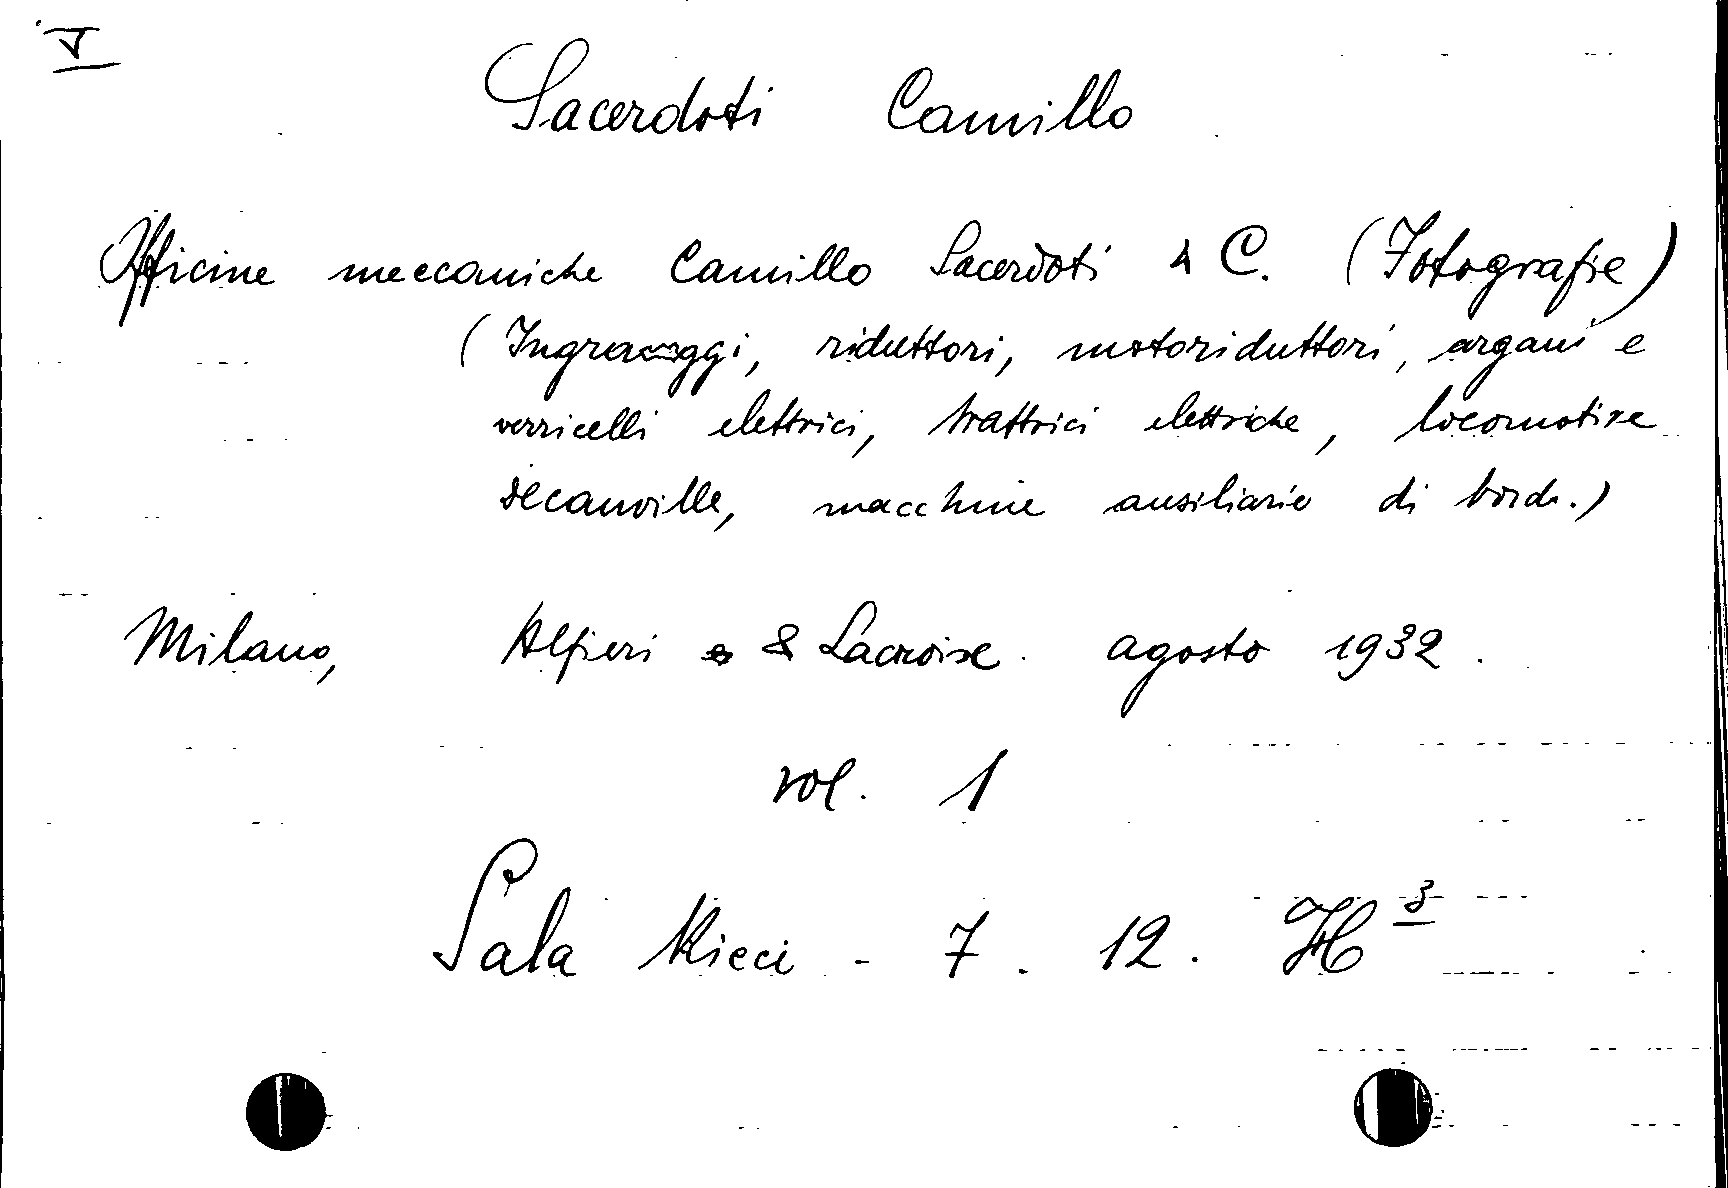 V
Sacerdoti Camillo
Officine meccaniche Camillo Sacerdoti & C. (Fotografie)
(Ingranaggi, riduttori, motoriduttori, argani e
verricelli elettrici, trattrici elettriche, locomotive
decauville, macchine ausiliarie di bordo.)
Milano, Alfieri & Lacroix. agosto 1932.
vol. 1
Sala Ricci - 7. 12. H 3